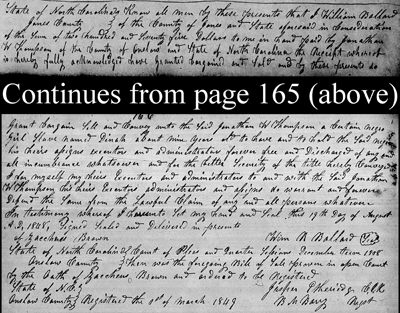 State of North Carolina Know all men by these presents that I William Ballard
Jones County of the County of Jones and State aforesaid in Consideration
of the Sum of two hundred and Seventy five Dollars to me in hand paid by Jonathan
W Thompson of the County of Onslow and State of North Carolina the Receipt whereof
is hereby fully acknowledged have granted bargained and Sold and by these presents do
Continues from page 165 (above)
166
grant bargain Sell and Convey unto the Said Jonathan W Thompson a Certain negro
Girl Slave named Dinah about nine years old to have and to hold the Said negro
his heirs assigns executors and administrators forever free and Discharged of any and
all incumbrance whatsoever and for the better Security of the title hereby Conveyed
I for myself my heirs Executors and administrators to and with the Said Jonathan
W Thompson his heirs Executors and administrators and assigns do warrant and forever
Defend the Same from the Lawful Claim of any and all persons whatsoever
In testimony whereof I hereunto Set my hand and Seal this 19th Day of August
A.D. 1848, Signed Sealed and Delivered in presence
of Zaccheus Brown Wm R Ballard Seal
State of North Carolina Court of Pleas and Quarter Sessions December term 1848
Onslow County Then was the foregoing Bill of Sale proven in open Court
by the Oath of Zaccheus Brown and ordered to be Registered
State of N.C. Jasper Etheridge C.C.C.
Onslow County Registered the 1st of March 1849